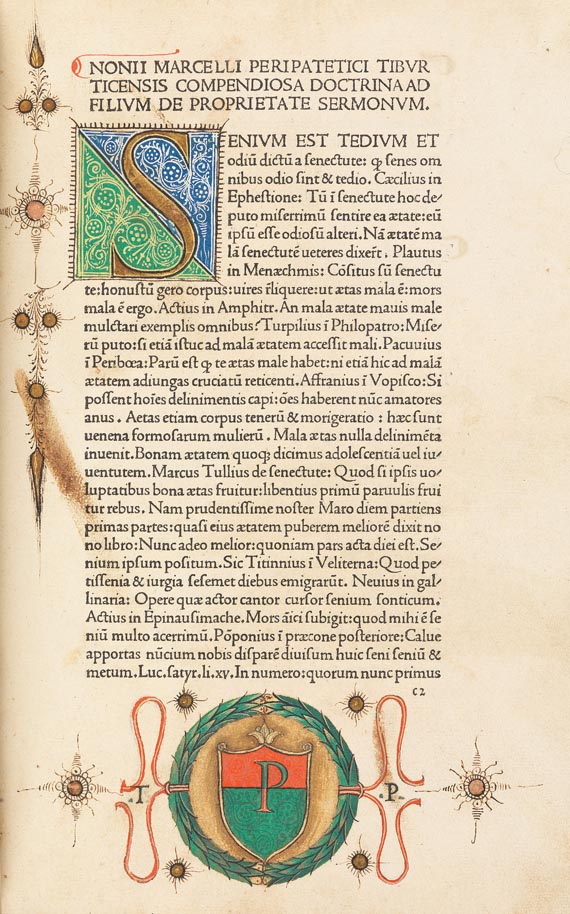 NONII MARCELLI PERIPATETICI TIBVR
TICENSIS COMPENDIOSA DOCTRINA AD
FILIVM DE PROPRIETATE SERMONVM.
SENIVM EST TEDIVM ET
odiū dictū a senectute: ꝙ senes om
nibus odio sint & tedio. Cæcilius in
Ephestione: Tū ī senectute hoc de/
puto miserrimū sentire ea ætate: eū
ipsū esse odiosū alteri. Nā ætatē ma
lā senectutē ueteres dixerī. Plautus
in Menæchmis: Cōsitus sū senectu
te: honustū gero corpus: uires rēliquere: ut ætas mala ē: mors
mala ē ergo. Actius in Amphitr. An mala ætate mauis male
mulctari exemplis omnibus? Turpilius ī Philopatro: Mise/
rū puto: si etiā istuc ad malā ætatem accessit mali. Pacuuius
ī Peribœa: Parū est ꝙ te ætas male habet: ni etiā hic ad malā
ætatem adiungas cruciatū reticenti. Affranius ī Vopisco: Si
possent hoīes delinimentis capi: ōes haberent nūc amatores
anus. Aetas etiam corpus tenerū & morigeratio: hæc sunt
uenena formosarum mulierū. Mala ætas nulla delinimēta
inuenit. Bonam ætatem quoqꝫ dicimus adolescentiā uel iu/
uentutem. Marcus Tullius de senectute: Quod si ipsis uo/
luptatibus bona ætas fruitur: libentius primū paruulis frui
tur rebus. Nam prudentissime noster Maro diem partiens
primas partes: quasi eius ætatem puberem meliorē dixit no
no libro: Nunc adeo melior: quoniam pars acta diei est. Se/
nium ipsum positum. Sic Titinnius ī Veliterna: Quod pe/
tissenia & iurgia sesemet diebus emigrarūt. Neuius in gal/
linaria: Opere quæ actor cantor cursor senium sonticum.
Actius in Epinausimache. Mors āici subigit: quod mihi ē se
niū multo acerrimū. Pōponius ī præcone posteriore: Calue
apportas nūcium nobis disparē diuisum huic seni seniū &
metum. Luc. satyr. li. xv. In numero: quorum nunc primus
c2
.T. P .P.